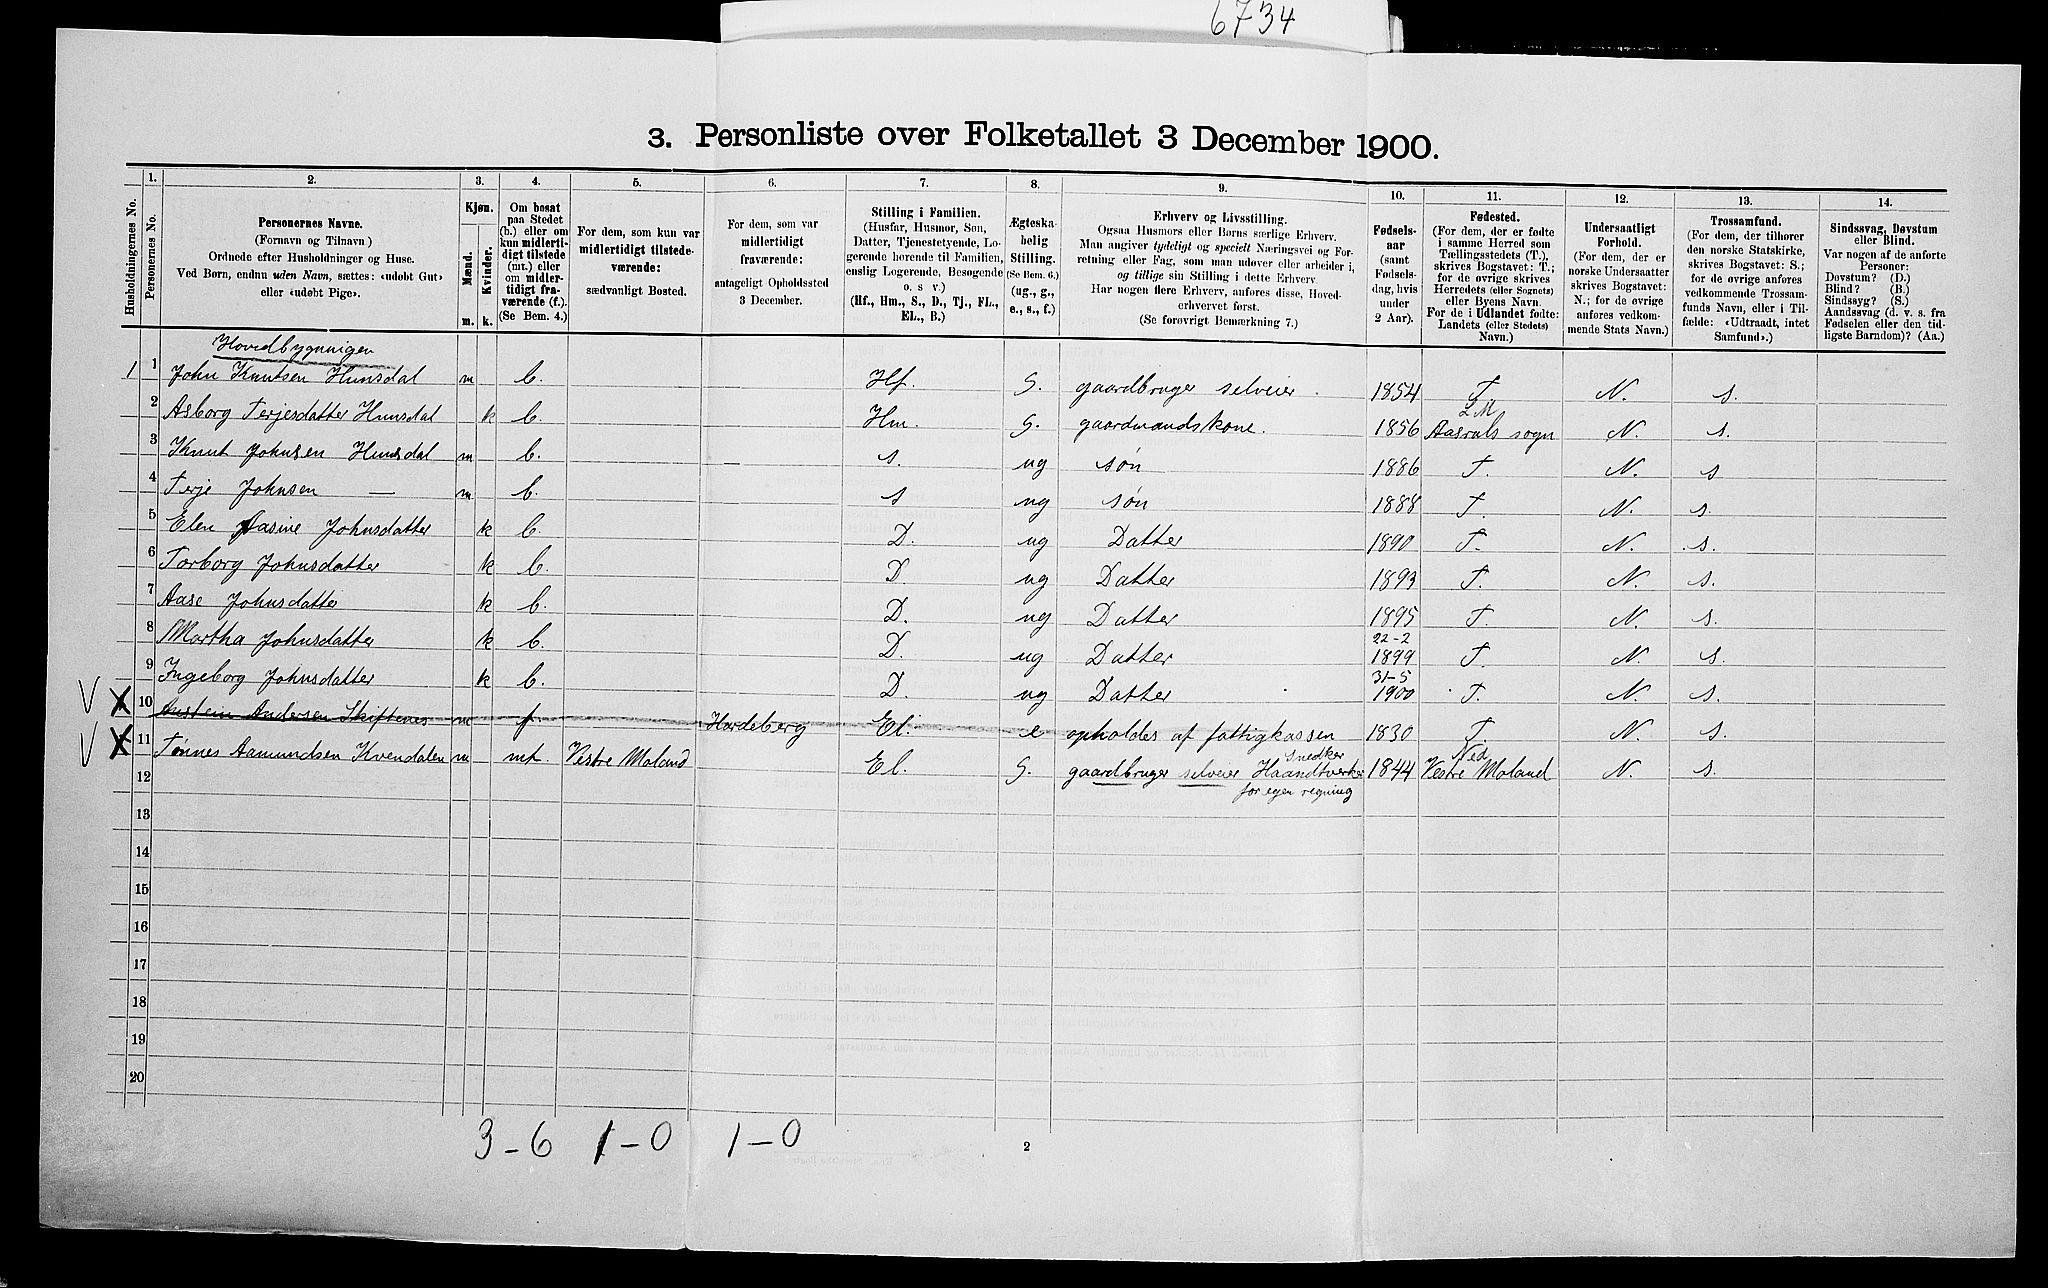 6734
3. Personliste over Folketallet 3 December 1900.
Husholdningernes No.
1.
Personernes No.
2.
Personernes Navne.
(Fornavn og Tilnavn)
Ordnede efter Husholdninger og Huse.
Ved Børn, endnu uden Navn, sættes: «udøbt Gut»
eller «udøbt Pige».
3.
Kjøn.
Mænd.
Kvinder.
m. k.
4.
Om bosat
paa Stedet
(b.) eller om
kun midlerti-
digt tilstede
(mt.) eller
om midler-
tidigt fra-
værende (f.).
(Se Bem. 4.)
5.
For dem, som kun var
midlertidigt tilstede-
værende:
sædvanligt Bosted.
6.
For dem, som var
midlertidigt
fraværende:
antageligt Opholdssted
3 December.
7.
Stilling i Familien.
(Husfar, Husmor, Søn,
Datter, Tjenestetyende, Lo-
gerende hørende til Familien,
enslig Logerende, Besøgende
o. s v.)
(Hf., Hm., S., D., Tj., FL.,
EL., B.)
8.
Ægteska-
belig
Stilling.
(Se Bem. 6.)
(ug., g.,
e., s., f.)
9.
Erhverv og Livsstilling.
Ogsaa Husmors eller Børns særlige Erhverv.
Man angiver tydeligt og specielt Næringsvei og For-
retning eller Fag, som man udøver eller arbeider i,
og tillige sin Stilling i dette Erhverv.
Har nogen flere Erhverv, anføres disse, Hoved-
erhvervet først.
(Se forøvrigt Bemærkning 7.)
10.
Fødsels-
aar
(samt
Fødsels-
dag, hvis
under
2 Aar).
11.
Fødested.
(For dem, der er fødte
i samme Herred som
Tællingsstedets (T.),
skrives Bogstavet: T.;
for de øvrige skrives
Herredets (eller Sognets)
eller Byens Navn.
For de i Udlandet fødte:
Landets (eller Stedets)
Navn.)
12.
Undersaatligt
Forhold.
(For dem, der er
norske Undersaatter
skrives Bogstavet:
N.; for de øvrige
anføres vedkom-
mende Stats Navn.)
13.
Trossamfund.
(For dem, der tilhører
den norske Statskirke,
skrives Bogstavet: S.;
for de øvrige anføres
vedkommende Trossam-
funds Navn, eller i Til-
fælde: «Udtraadt, intet
Samfund».)
14.
Sindssvag, Døvstum
eller Blind.
Var nogen af de anførte
Personer:
Døvstum? (D.)
Blind? (B.)
Sindssyg? (S.)
Aandssvag (d. v. s. fra
Fødselen eller den tid-
ligste Barndom)? (Aa.)
Hovedbygnigen
1 1 John Knutsen Hunsdal m b. Hf. g. gaardbruger selveier. 1854 T. N. s.
2 Asborg Terjesdatter Hunsdal k b. Hm. g. gaardmandskone. 1856 Aasrals sogn N. s.
3 Knut Johnsen Hunsdal m b. s. ug søn 1886 T. N. s
4 Terje Johnsen — m b. s ug søn 1888 T. N. s.
5 Elen Aasine Johnsdatter k b. D. ug Datter 1890 T. N. s.
6 Torborg Johnsdatter k b. D ug Datter 1893 T. N. s.
7 Aase Johnsdatter k b. D. ug Datter 1895 T. N. s.
8 Martha Johnsdatter k b. D. ug Datter 22-2 1899 T. N. s.
9 Ingeborg Johnsdatter k b. D. ug Datter 31-5 1900 T. N. s.
V X 10 Anstein Andersen Skiftenes m f. Hordeberg El. e opholdes af fattigkassen 1830 T. N. s.
V X 11 Tønnes Aamundsen Kvendalen m mt. Vestre Moland El. g. gaardbruger selveier Snedker Haandtverker 1844 Vestre Moland N. s.
for egen regning
12
13
14
15
16
17
18
19
20
3-6 1-0 1-0
2